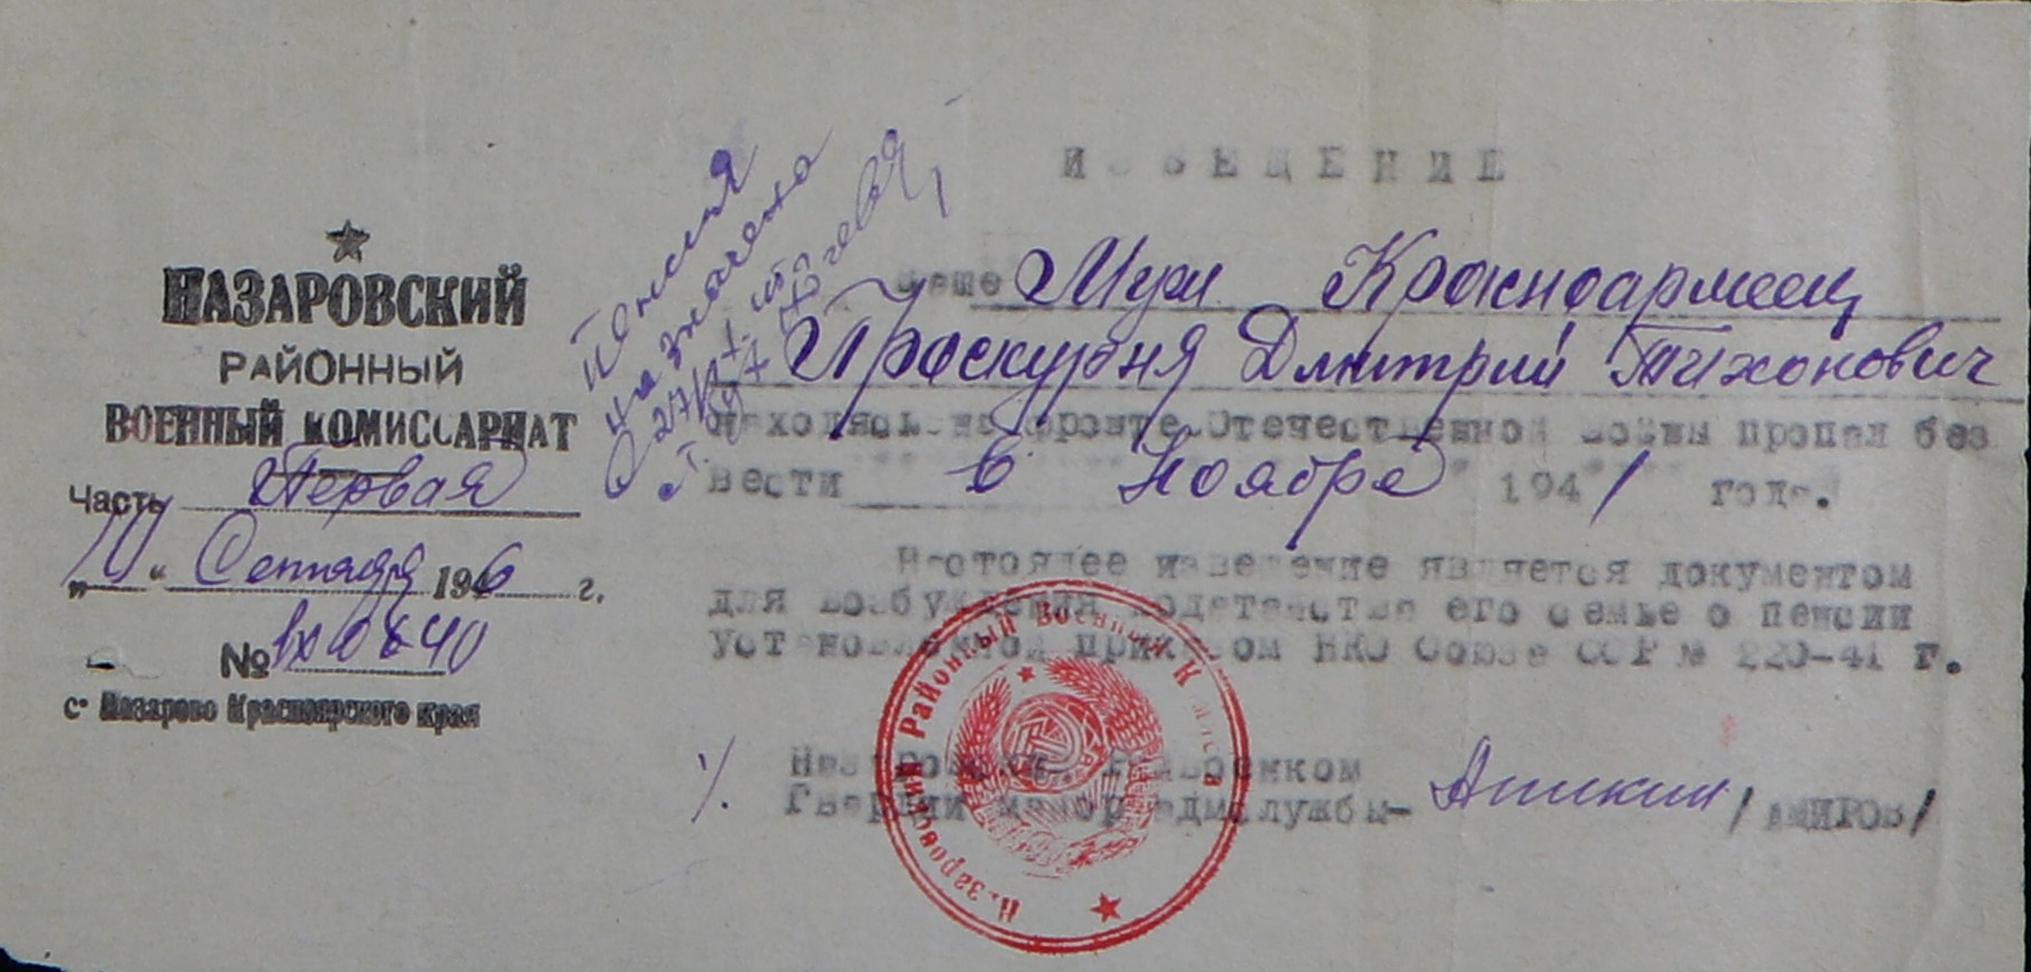 НАЗАРОВСКИЙ
РАЙОННЫЙ
ВОЕННЫЙ КОМИССАРИАТ
Часть Первая
„10“ Сентября 1946 г.
№
с. Назарово Красноярского края
Пенсия
назначена
ИЗВЕЩЕНИЕ
Ваше Муж Красноармеец
Проскурня Дмитрий Тихонович
находясь на фронте Отечественной войны пропал без
вести в Ноябре 1941 года.
Настоящее извещение является документом
для возбуждения ходатайства его семье о пенсии
установленной приказом НКО Союза ССР № 220-41 г.
Назаровский Райвоенком
Гвардии майор адмслужбы- /АМИРОВ/
Назаровский Районный Военный Комиссариат